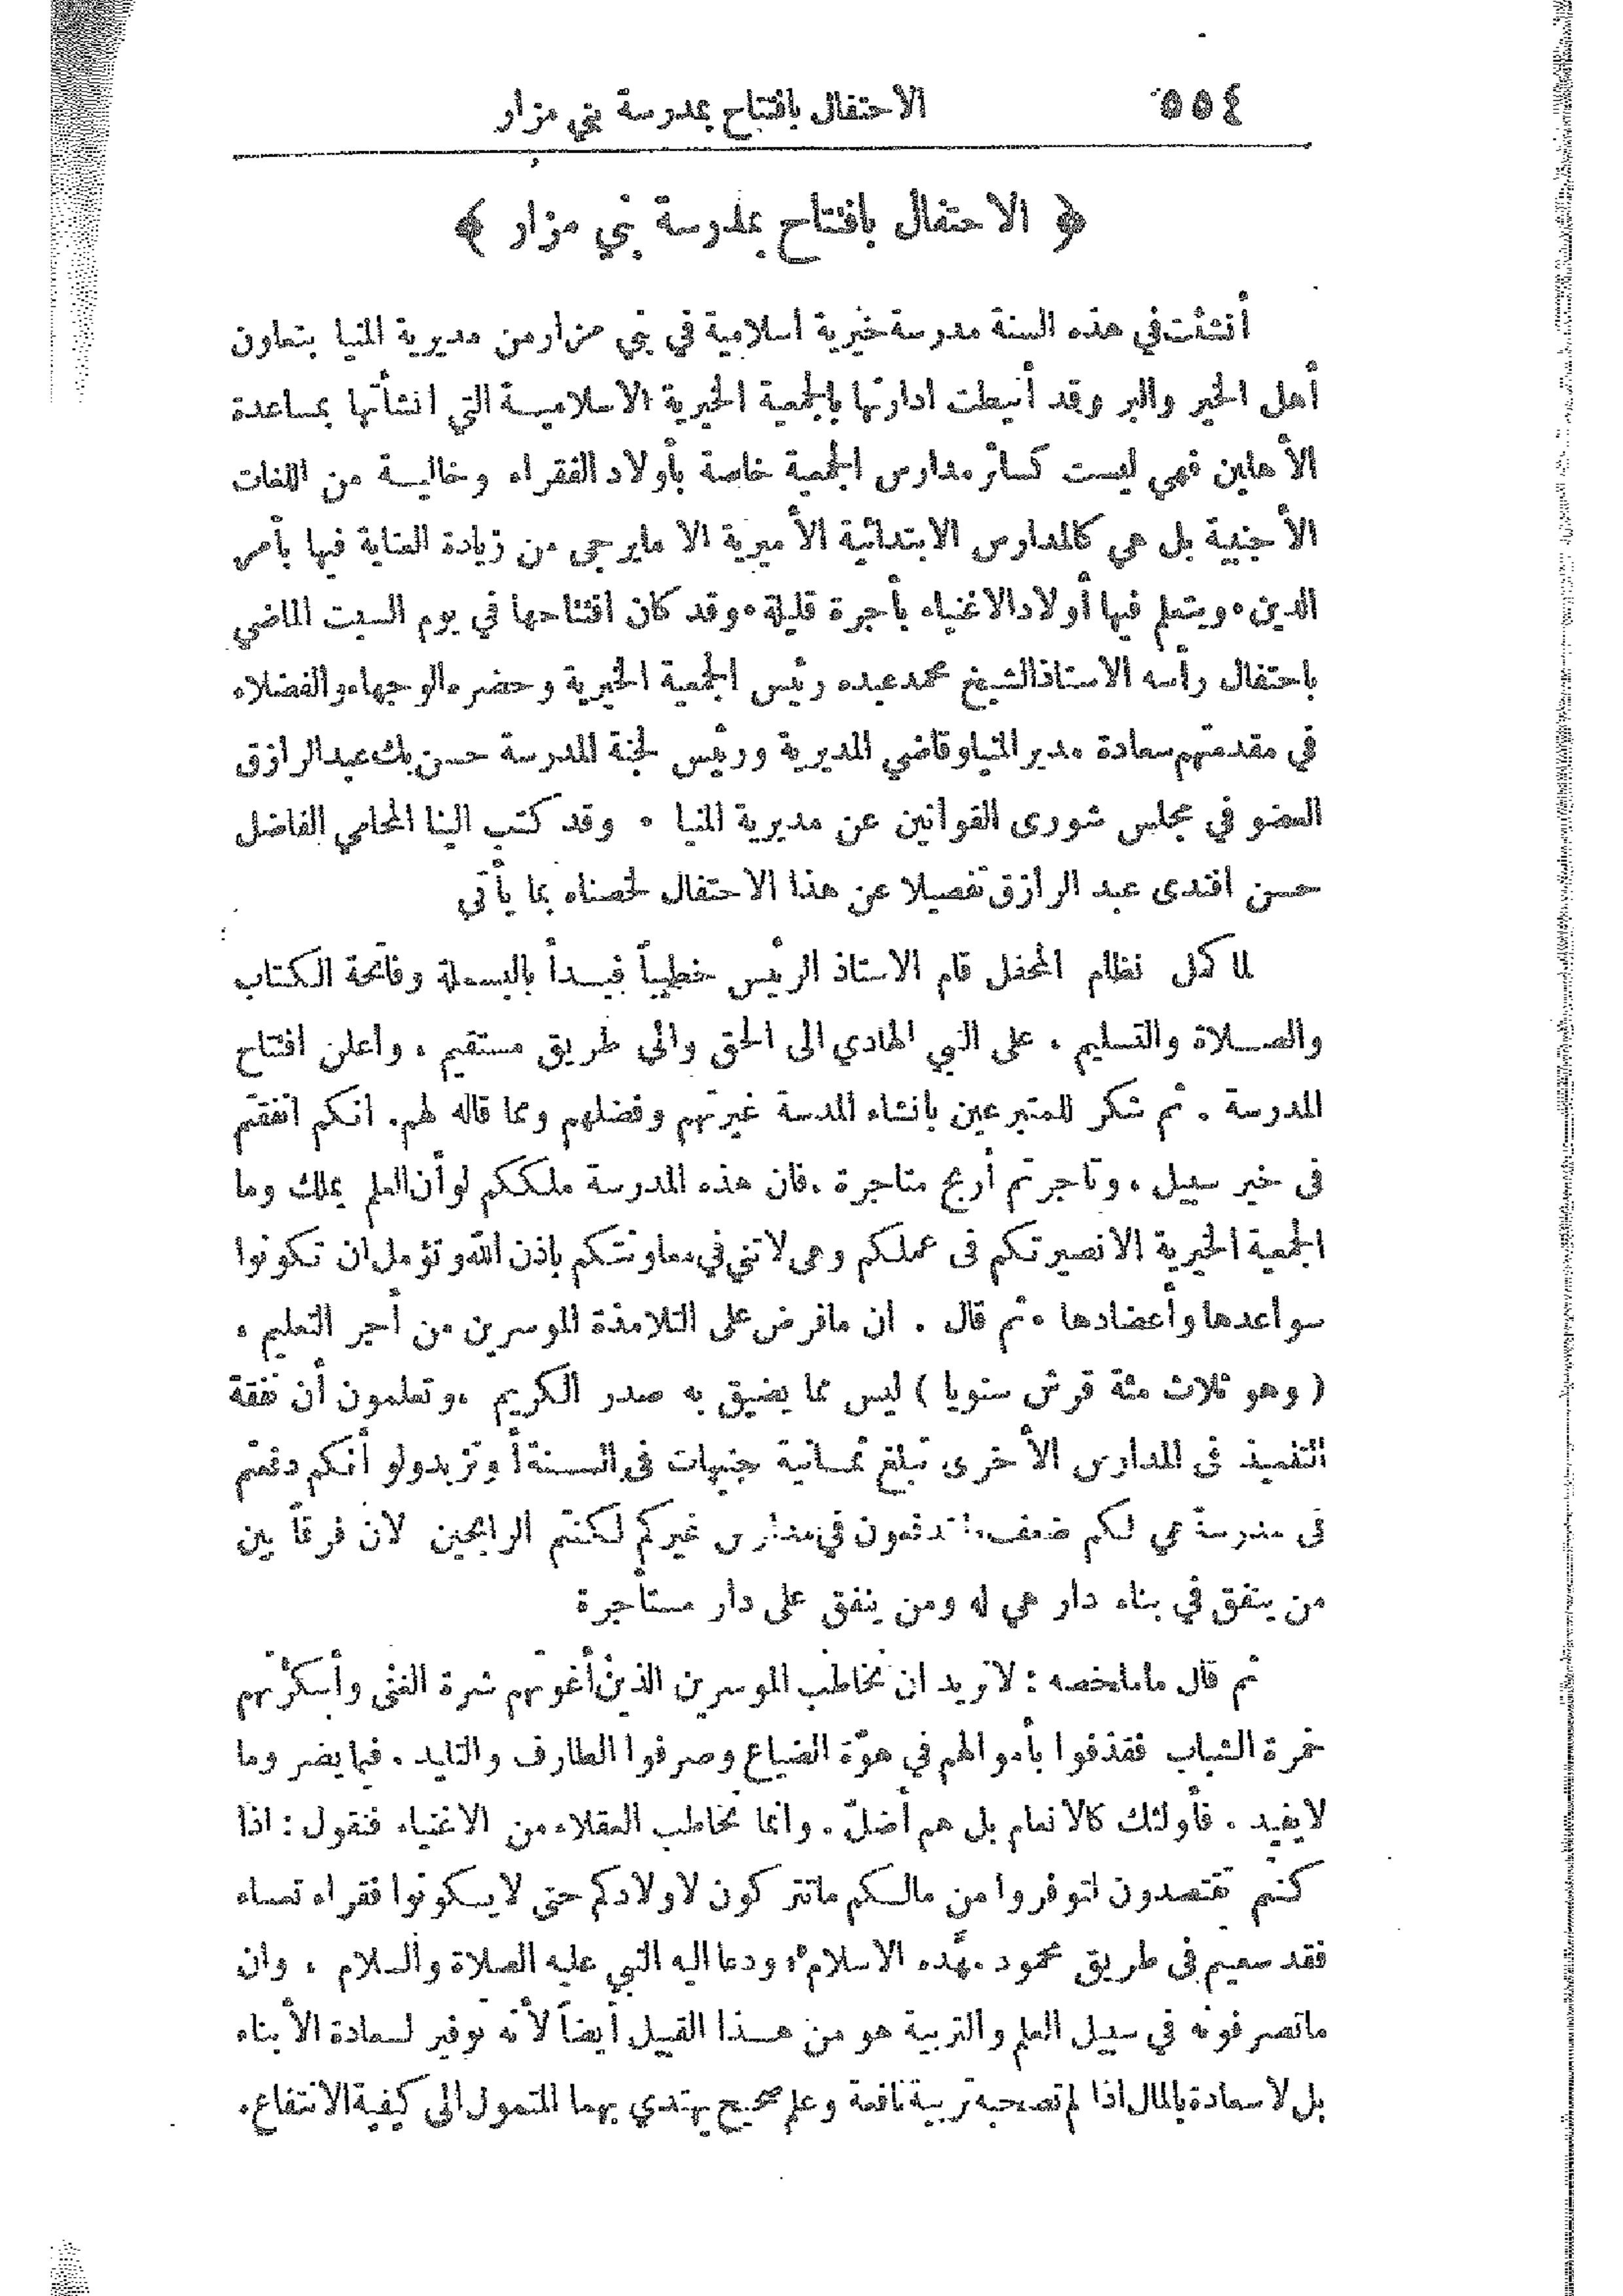 ٥٥٤ الاحتفال بافتتاح بمدرسة بني مزار
﴿ الاحتفال بافتتاح بمدرسة بني مزار ﴾
أنشئت في هذه السنة مدرسة خيرية اسلامية في بني مزار من مديرية المنيا بتعاون
أهل الخير والبر وقد أنيطت ادارتها بالجمعية الخيرية الاسلاميــة التي انشأتها بمساعدة
الأهلين فهي ليست كسائر مدارس الجمعية خاصة بأولاد الفقراء وخاليــة من اللغات
الأجنبية بل هي كالمدارس الابتدائية الأميرية الا مايرجى من زيادة العناية فيها بأمر
الدين ٠ ويتعلم فيها أولاد الاغنياء بأجرة قليلة ٠ وقد كان افتتاحها في يوم السبت الماضي
باحتفال رأسه الاستاذ الشيخ محمد عبده رئيس الجمعية الخيرية وحضره الوجهاء والفضلاء
في مقدمتهم سعادة مدير المنيا وقاضي المديرية ورئيس لجنة المدرسة حسن بك عبد الرازق
العضو في مجلس شورى القوانين عن مديرية المنيا ٠ وقد كتب الينا المحامي الفاضل
حسن افندى عبد الرازق تفصيلا عن هذا الاحتفال لخصناه بما يأتي
لما كمل نظام المحفل قام الاستاذ الرئيس خطيباً فبــدأ بالبسملة وفاتحة الكتاب
والصــلاة والتسليم ، على النبي الهادي الى الحق والى طريق مستقيم ، وأعلن افتتاح
المدرسة . ثم شكر للمتبرعين بانشاء المدسة غيرتهم وفضلهم ومما قاله لهم. انكم انفقتم
فى خير سبيل ، وتاجرتم أربح متاجرة ، فان هذه المدرسة ملككم لو أن العلم يملك وما
الجمعية الخيرية الا نصيرتكم فى عملكم وهى لا تني في معاونتكم باذن الله وتؤمل ان تكونوا
سواعدها وأعضادها ٠ ثم قال . ان مافرض على التلامذة الموسرين من أجر التعليم ،
( وهو ثلاث مئة قرش سنويا ) ليس مما يضيق به صدر الكريم ، وتعلمون أن نفقة
التلميذ فى المدارس الأخرى تبلغ ثمــانية جنيهات فى السنة أو تزيد ولو أنكم دفعتم
فى مدرسة هي لكم ضعف ما تدفعون في مدارس غيركم لكنتم الرابحين لان فرقاً بين
من ينفق في بناء دار هي له ومن ينفق على دار مستأجرة
ثم قال ماملخصه : لا نريد ان نخاطب الموسرين الذين أغوتهم شرة الغنى وأسكرتهم
خمرة الشباب فقذفوا بأموالهم في هوّة الضياع وصرفوا الطارف والتليد ، فيما يضر وما
لا يفيد ، فأولئك كالانعام بل هم أضلّ . وانما نخاطب العقلاء من الاغنياء فنقول : اذا
كنتم تقتصدون لتوفروا من مالــكم ماتتركون لاولادكم حتى لا يــكونوا فقراء تعساء
فقد سعيتم فى طريق محمود مهّده الاسلام ، ودعا اليه النبي عليه الصلاة والسلام ، وان
ماتصرفونه في سبيل العلم والتربية هو من هــذا القبيل أيضاً لأنه توفير لسعادة الأبناء
بل لا سعادة بالمال اذا لم تصحبه تربية نافعة وعلم صحيح يهتدي بهما المتمول الى كيفية الانتفاع.